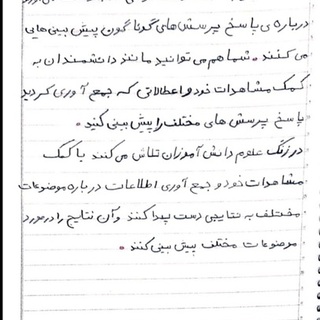 درباره ی پاسخ پرسش های گوناگون پیش بینی هایی
می کنند . شما هم می توانید مانند دانشمندان به
کمک مشاهدات خود و اطلاعاتی که جمع آوری کردید
پاسخ پرسش های مختلف را پیش بینی کنید .
در زنگ علوم دانش آموزان تلاش می کنند با کمک
مشاهدات خود و جمع آوری اطلاعات درباره موضوعات
مختلف به نتایجی دست پیدا کنند و آن نتایج را در مورد
موضوعات مختلف پیش بینی کنند .